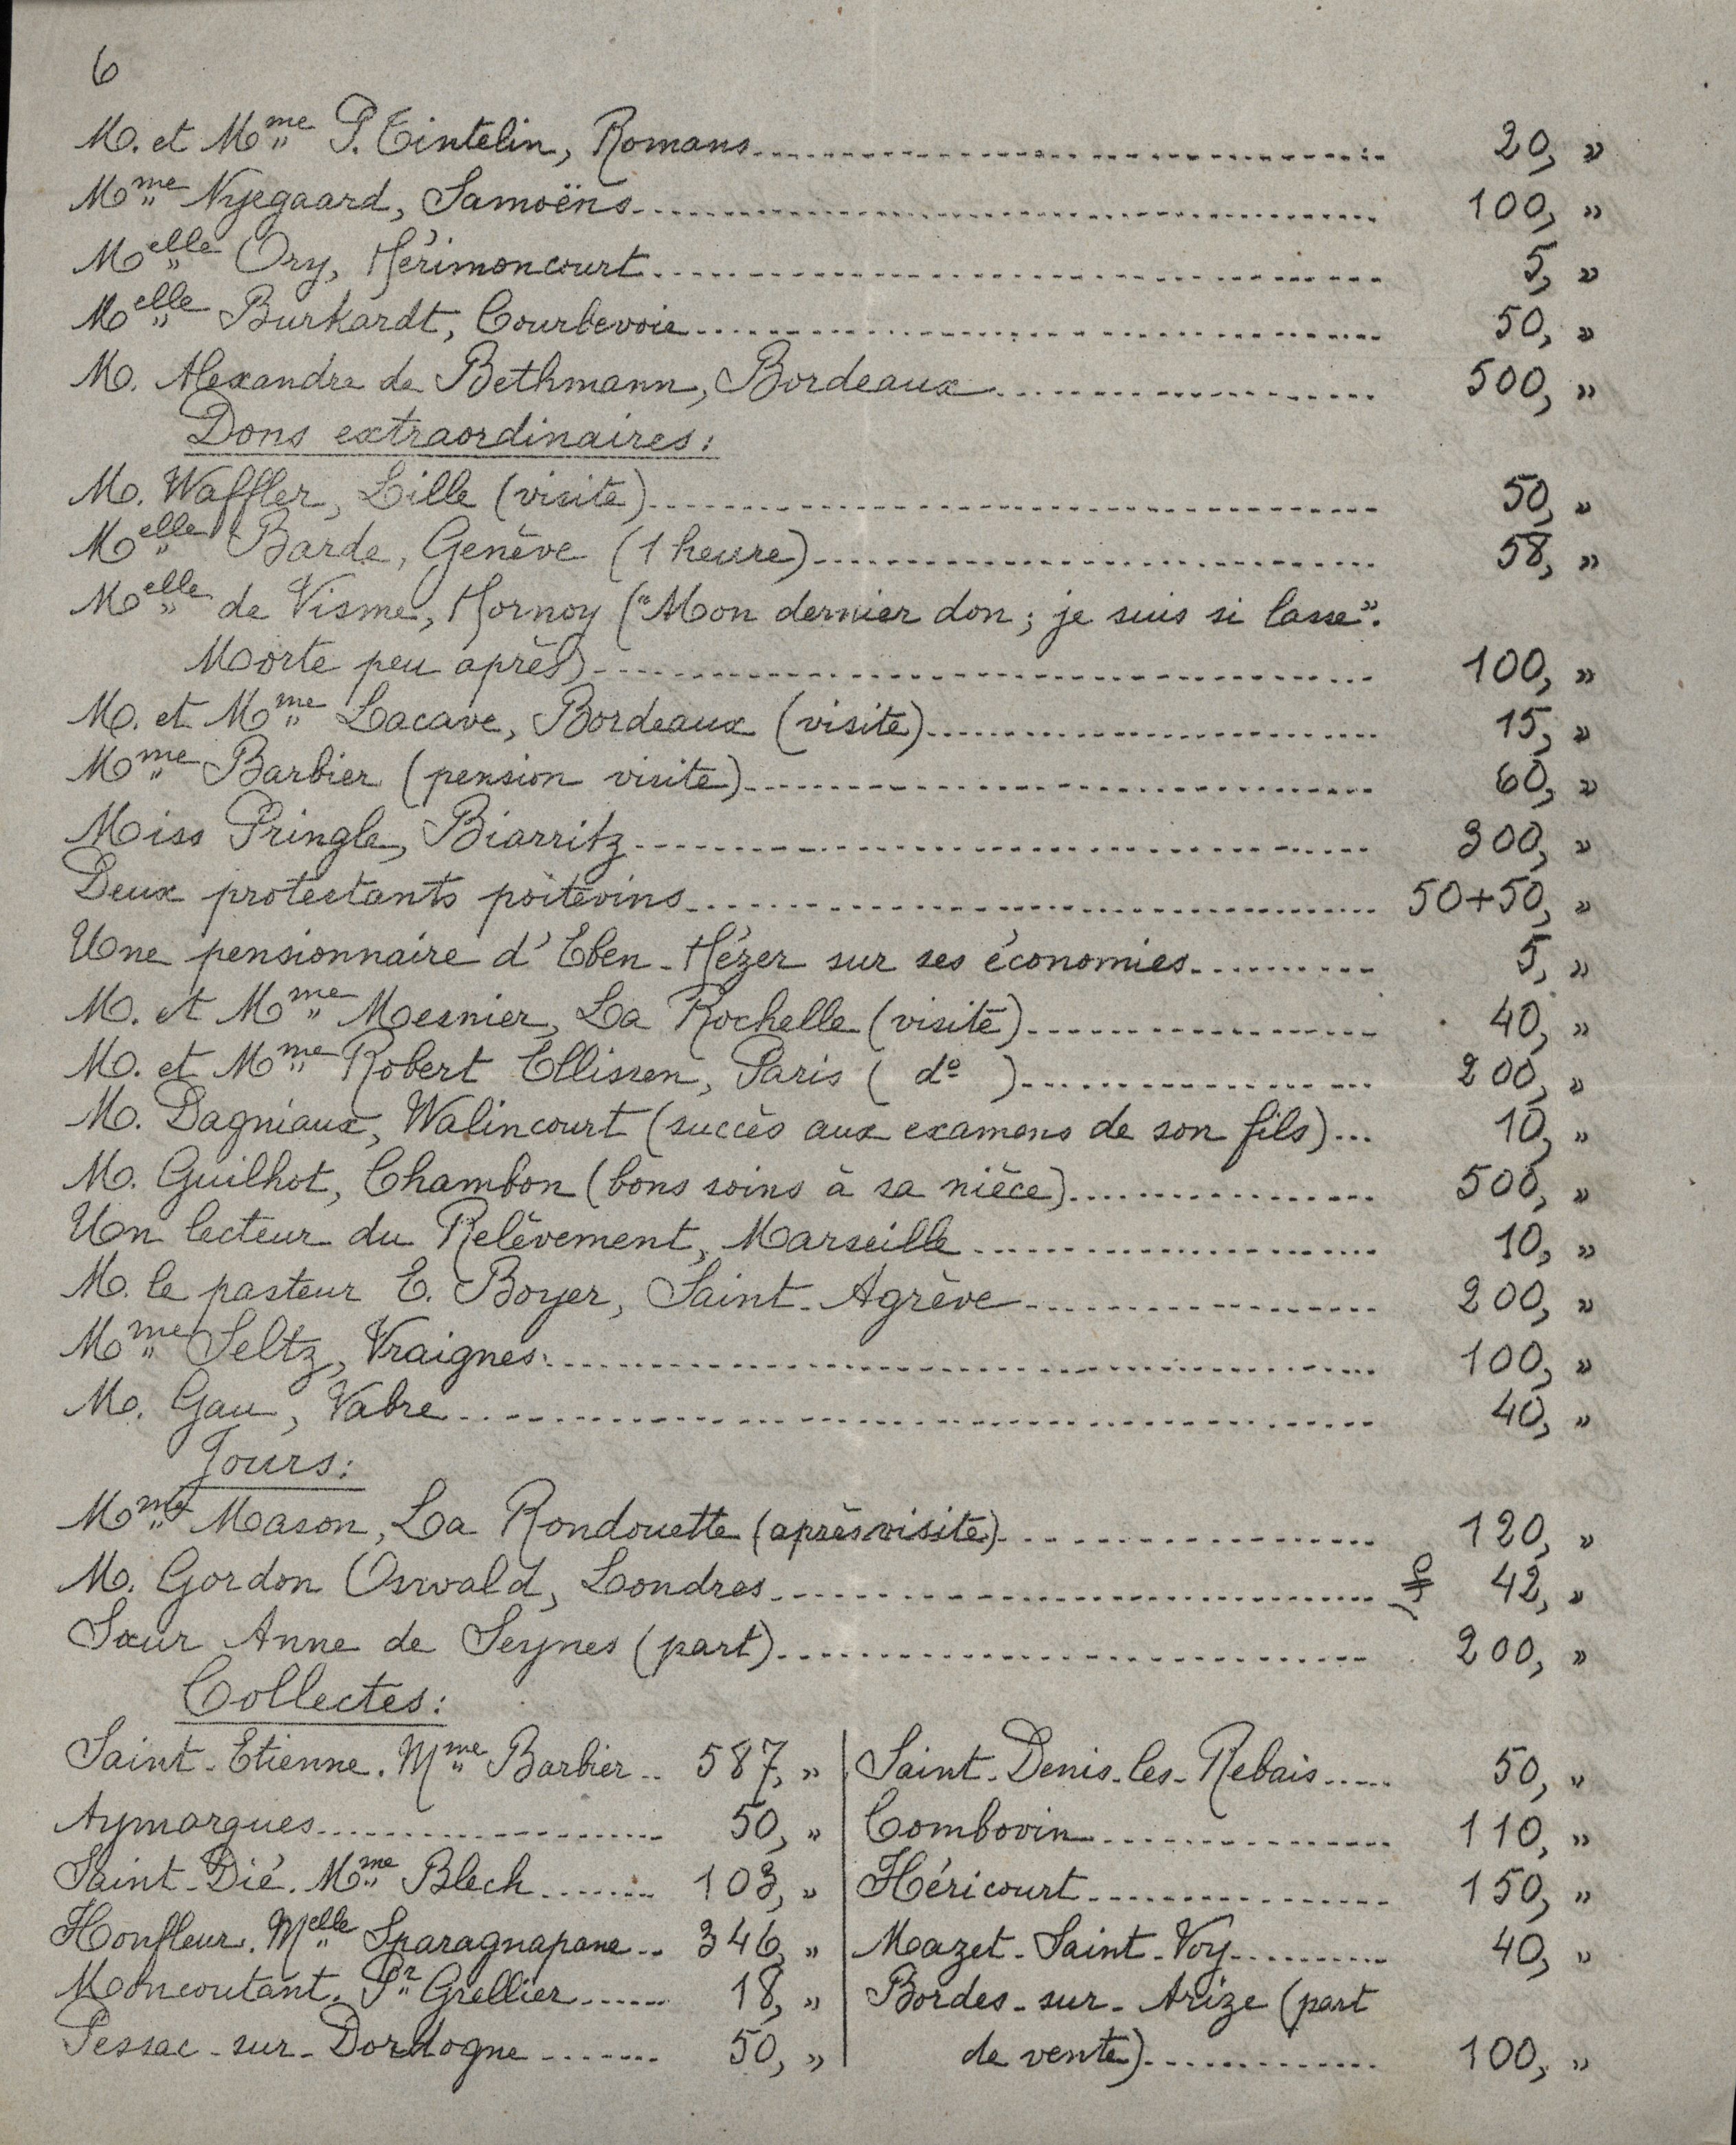 6
M. et Mme P. Tintelin, Romans 20, "
Mme Nyegaard, Samoëns 100, "
Melle Ory, Hérimoncourt 5, "
Melle Burkardt, Courbevoie 50, "
M. Alexandre de Bethmann, Bordeaux 500, "
Dons extraordinaires:
M. Waffler, Lille (visite) 50, "
Melle Barde, Genève (1 heure) 58, "
Melle de Visme, Hornoy ("Mon dernier don; je suis si lasse".
Morte peu après) 100, "
M. et Mme Lacave, Bordeaux (visite) 15, "
Mme Barbier (pension visite) 60, "
Miss Pringle, Biarritz 300, "
Deux protestants poitevins 50+50, "
Une pensionnaire d'Eben-Hézer sur ses économies 5, "
M. et Mme Mesnier, La Rochelle (visite) 40, "
M. et Mme Robert Ellissen, Paris ( do ) 200, "
M. Dagniaux, Walincourt (succès aux examens de son fils) 10, "
M. Guilhot, Chambon (bons soins à sa nièce) 500, "
Un lecteur du Relèvement, Marseille 10, "
M. le pasteur E. Boyer, Saint-Agrève 200, "
Mme Seltz, Vraignes 100, "
M. Gau, Vabre 40, "
Jours:
Mme Mason, La Rondouette (après visite) 120, "
M. Gordon Oswald, Londres 42, "
Sœur Anne de Seynes (part) 200, "
Collectes:
Saint-Etienne. Mme Barbier 587, " | Saint-Denis-les-Rebais 50, "
Aymargues 50, " | Combovin 110, "
Saint-Dié. Mme Blech 103, " | Héricourt 150, "
Honfleur. Melle Sparagnapane 346, " | Mazet-Saint-Voy 40, "
Moncoutant. Pr Grellier 18, " | Bordes-sur-Arize (part
Pessac-sur-Dordogne 50, " | de vente) 100, "